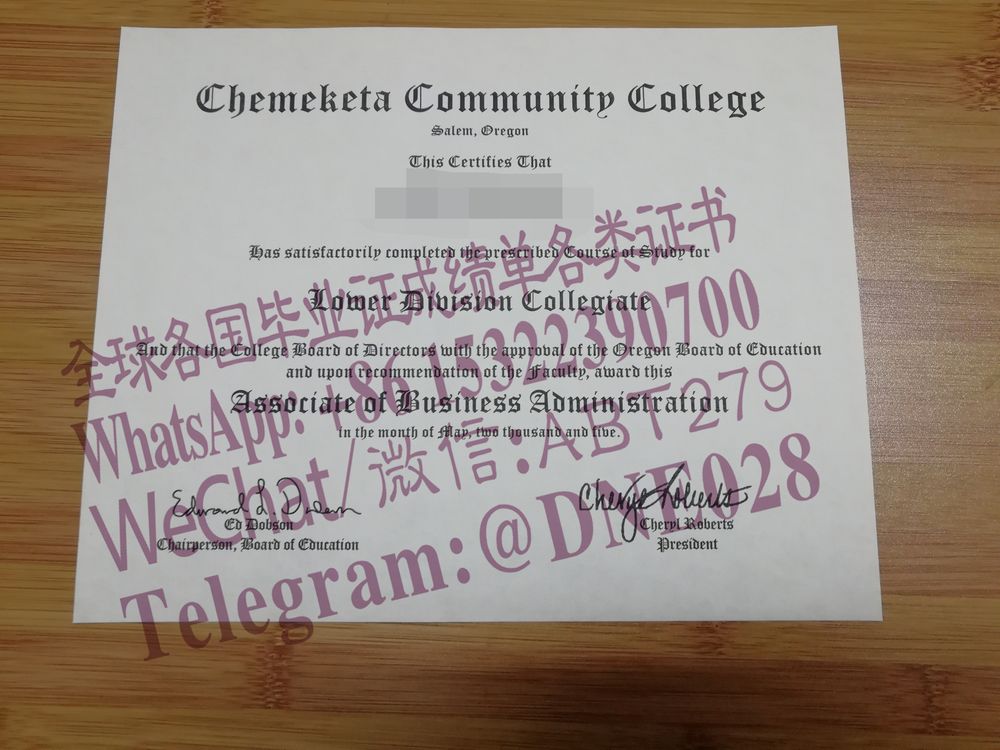 Chemeketa Community College
Salem, Oregon
This Certifies That
Has satisfactorily completed the prescribed Course of Study for
Lower Division Collegiate
And that the College Board of Directors with the approval of the Oregon Board of Education
and upon recommendation of the Faculty, award this
Associate of Business Administration
in the month of May, two thousand and five.
Edward L. Dobson
Ed Dobson
Chairperson, Board of Education
Cheryl Roberts
Cheryl Roberts
President
全球各国毕业证成绩单各类证书
WhatsApp: +86 15322390700
WeChat/微信:ABT279
Telegram:@DNE028